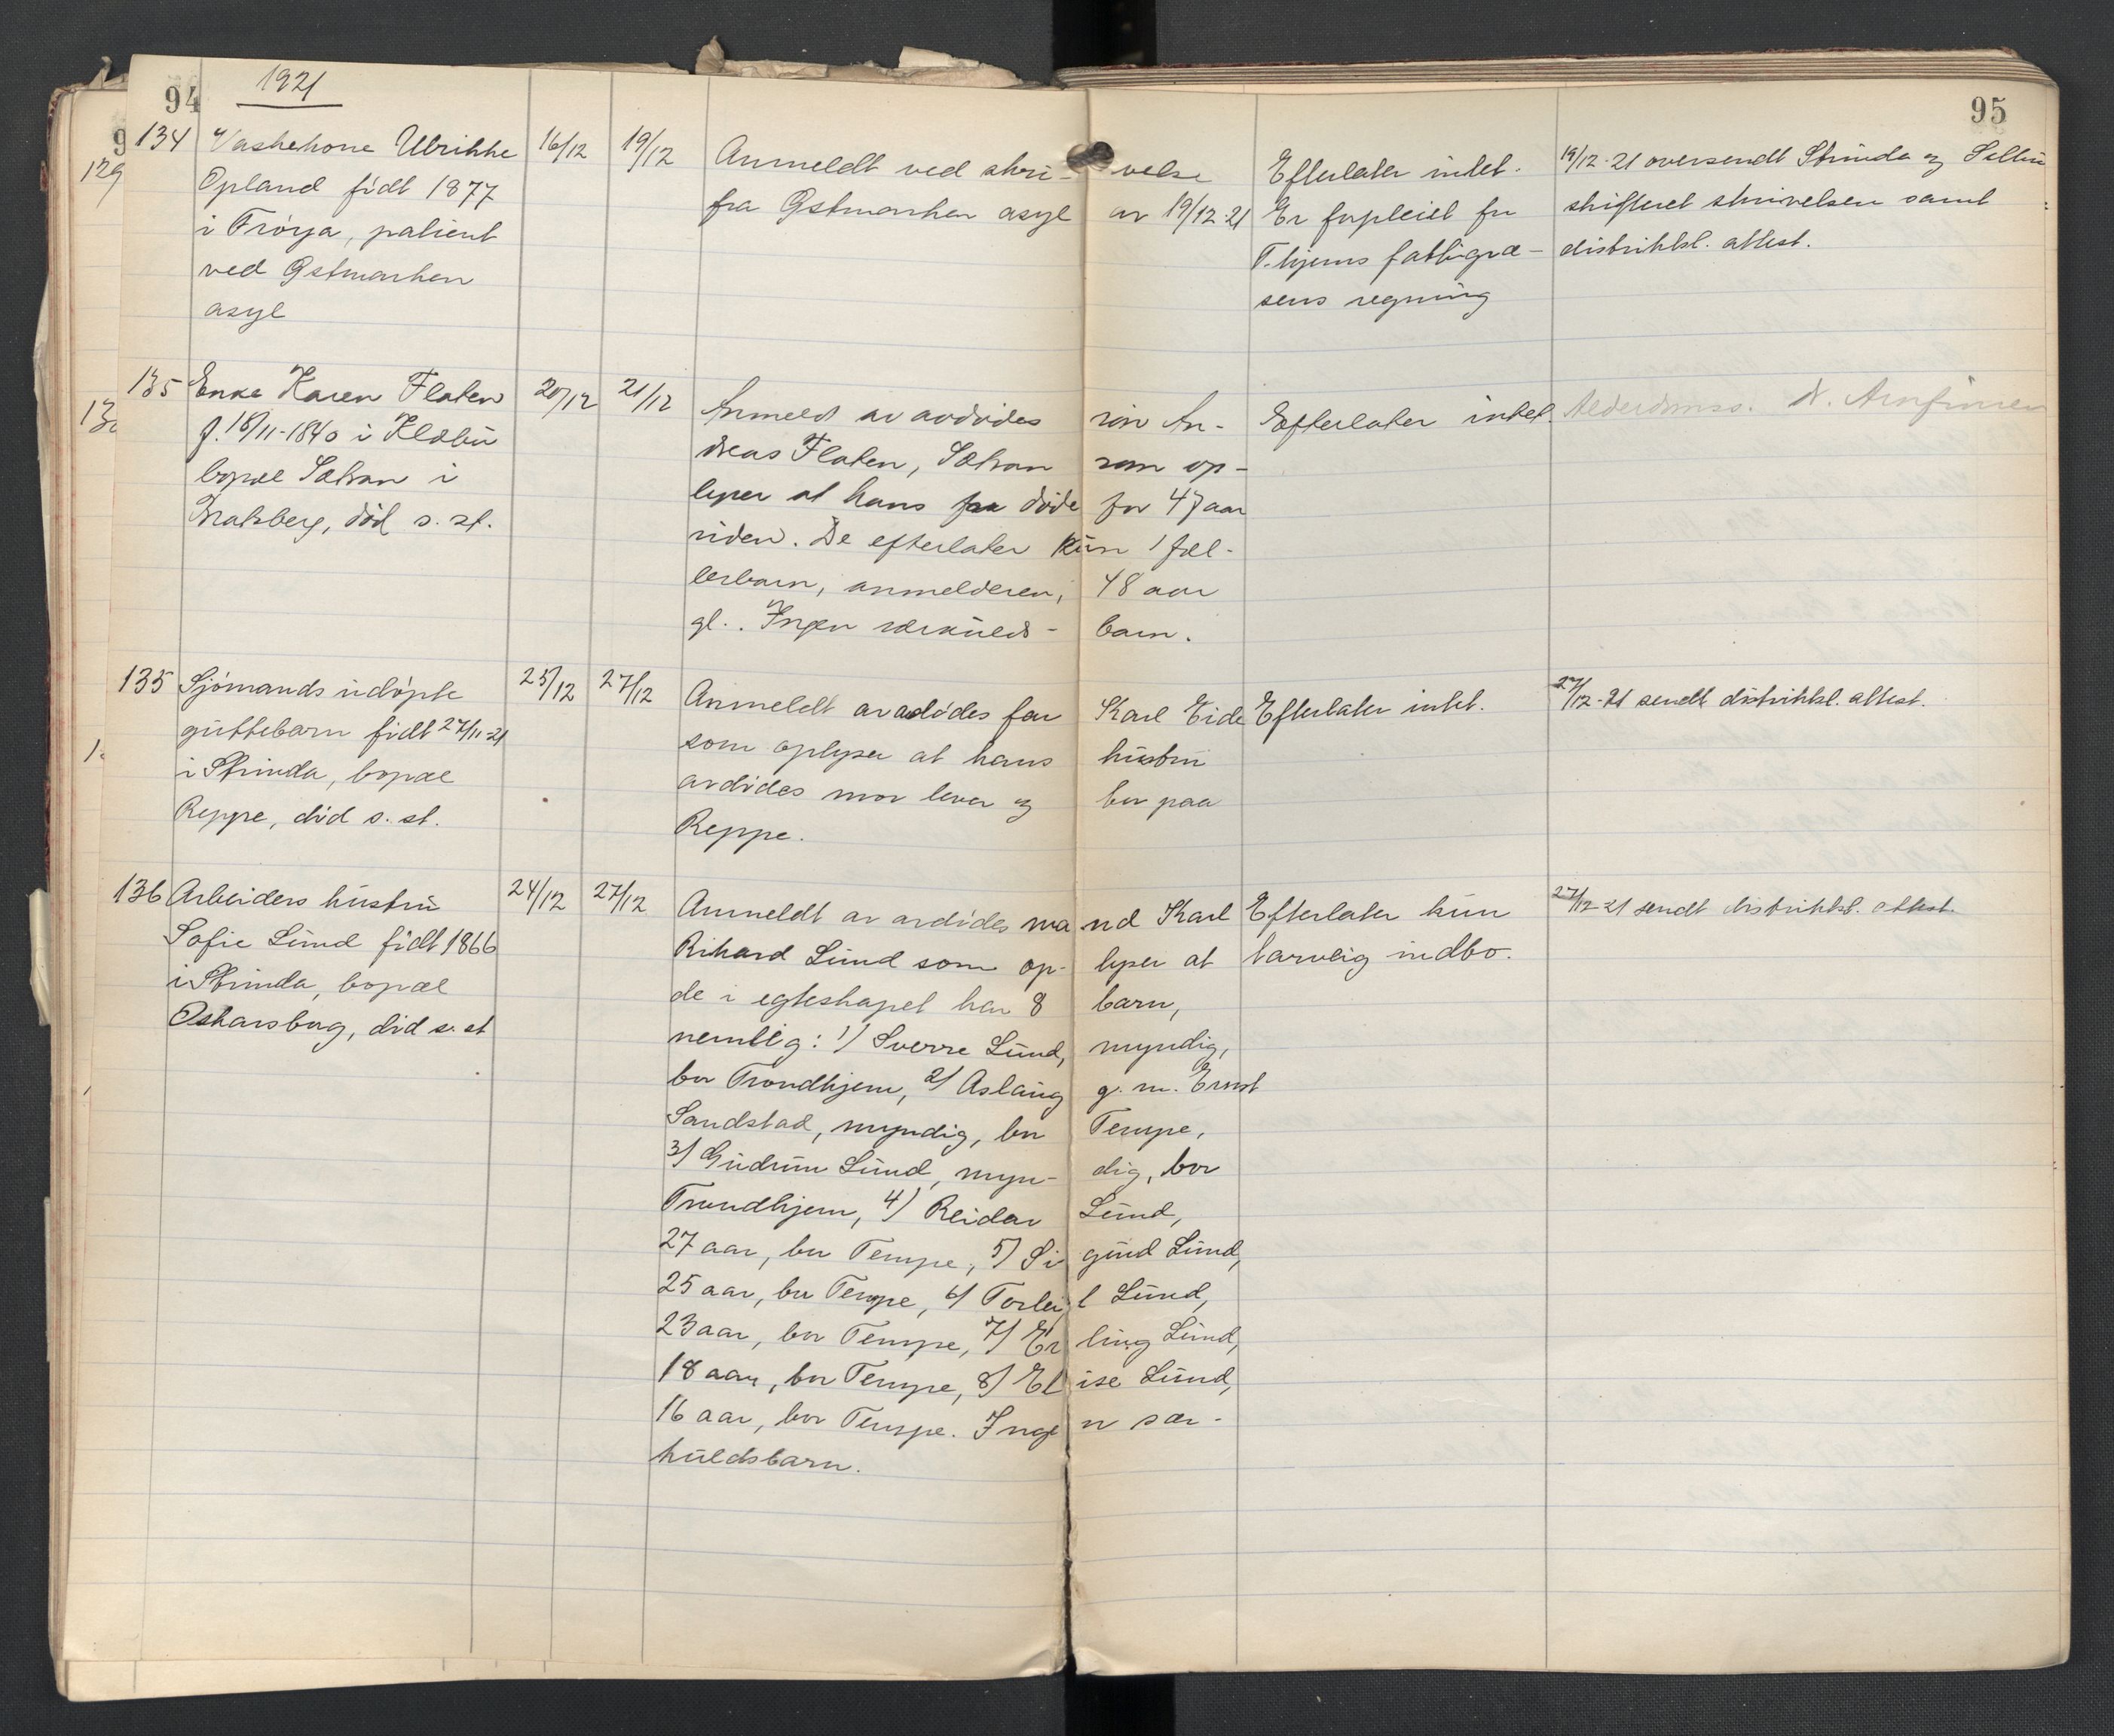 94
1921
95
134 Vaskekone Ulrikke 16/12 19/12 Anmeldt ved skri- velse Efterlater intet. 19/12-21 oversendt Strinda og Selbu
Opland født 1877 fra Østmarken asyl av 19/12 21 Er forpleiet for skifteret skrivelsen samt
i Frøya, patient T.hjems fattigvæ- distriktsl. attest.
ved Østmarken sens regning
asyl
135 Enke Karen Flaten 20/12 21/12 Anmeldt av avdødes søn An- Efterlater intet. Alderdomss. N. Arnfinsen
f. 18/11-1840 i Klæbu dreas Flaten, som op-
bopæl i lyser at hans far døde for 47 aar
Bratsberg, død s. st. siden. De efterlater kun 1 fæl-
lesbarn, anmelderen, 48 aar
gl.. Ingen særkulds- barn.
135 Sjømands udøpte 25/12 27/12 Anmeldt av avdødes far Karl Eide Efterlater intet. 27/12-21 sendt distriktsl. attest.
guttebarn født 27/11-21 som oplyser at hans hustru
i Strinda, bopæl avdødes mor lever og bor paa
Reppe, død s. st. Reppe.
136 Arbeiders hustru 24/12 27/12 Anmeldt av avdødes ma nd Karl Efterlater kun 27/12-21 sendt distriktsl. attest.
Sofie Lund født 1866 Rikard Lund som op- lyser at tarvelig indbo.
i Strinda, bopæl de i egteskapet har 8 barn,
Oskarsborg, død s. st nemlig: 1) Sverre Lund, myndig,
bor Trondhjem, 2) Aslaug g. m. Ernst
Sandstad, myndig, bor Tempe,
3) Gudrun Lund, myn- dig, bor
Trondhjem, 4) Reidar Lund,
27 aar, bor Tempe, 5) Si gurd Lund,
25 aar, bor Tempe, 6) Lund,
23 aar, bor Tempe, 7) Er ling Lund,
18 aar, bor Tempe, 8) El ise Lund,
16 aar, bor Tempe. Inge n sær-
kuldsbarn.
129